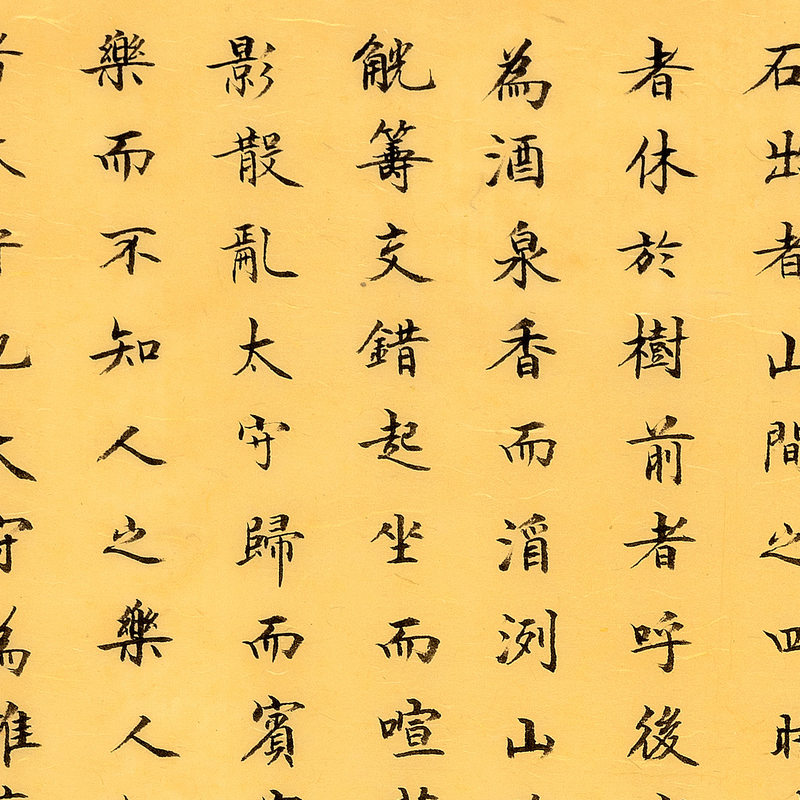 石出者山間之四時
者休於樹前者呼後
為酒泉香而酒洌山
觥籌交錯起坐而喧
影散亂太守歸而賓
樂而不知人之樂人